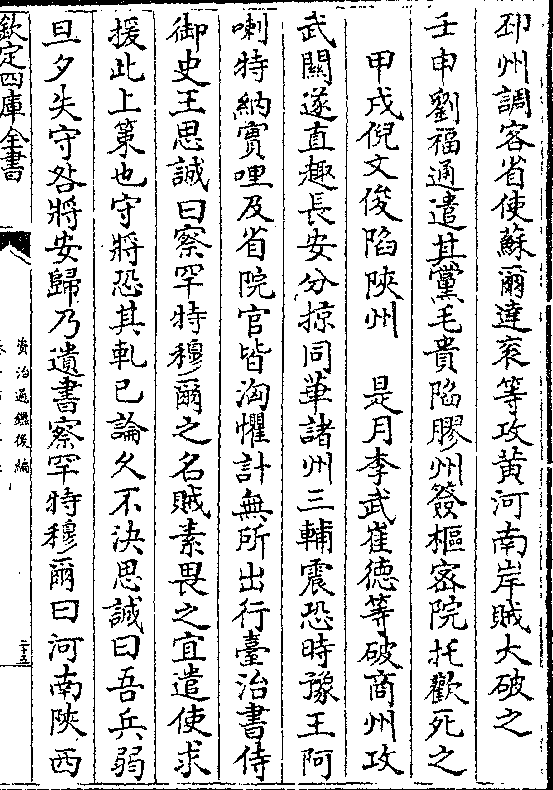 邳州調客省使蘇爾達衮等攻黄河南岸賊大破之
壬申劉福通遣其黨毛貴陷膠州簽樞密院托歡死之
甲戌倪文俊陷陜州　是月李武崔德等破商州攻
武關遂直趣長安分掠同華諸州三輔震恐時豫王阿
喇特納實哩及省院官皆洶懼計無所出行臺治書侍
御史王思誠曰察罕特穆爾之名賊素畏之宜遣使求
援此上策也守將恐其軋已論久不決思誠曰吾兵弱
旦夕失守咎將安歸乃遺書察罕特穆爾曰河南陜西
欽定四庫全書
資治通鑑後編
二十五